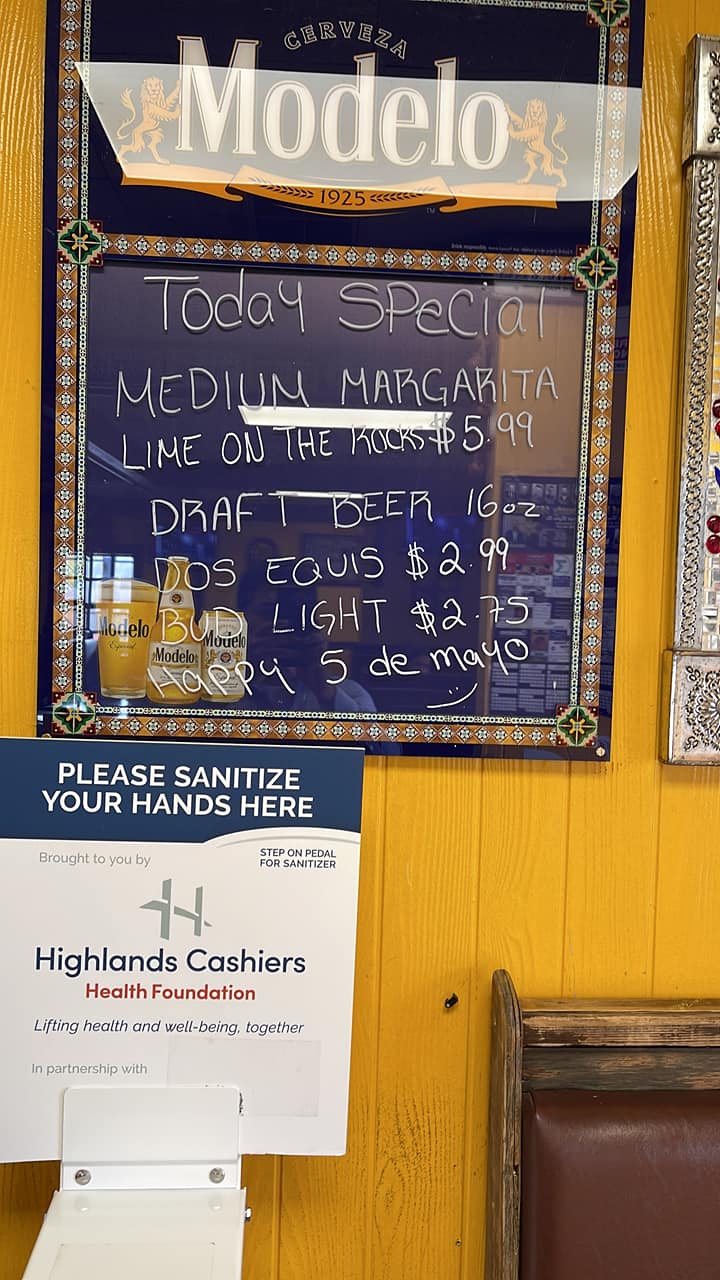 CERVEZA
Modelo
1925
Today Special
MEDIUM MARGARITA
LIME ON THE ROCKS $5.99
DRAFT BEER 16oz
DOS EQUIS $2.99
BUD LIGHT $2.75
Happy 5 de mayo
Modelo
Especial
Modelo
Modelo
PLEASE SANITIZE
YOUR HANDS HERE
Brought to you by
STEP ON PEDAL
FOR SANITIZER
Highlands Cashiers
Health Foundation
Lifting health and well-being, together
In partnership with